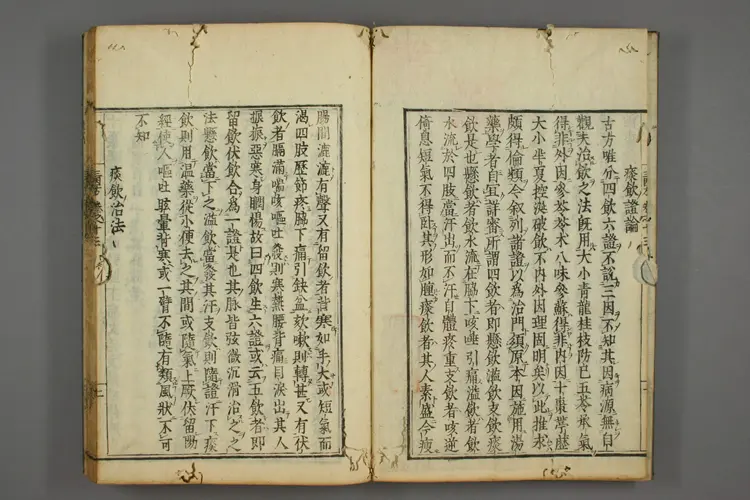 痰飲證論
古方唯分四飲六證不說三因不知其因病源無自
觀夫治飲之法既用大小青龍桂枝防已五苓承氣
得非外因參苓苓朮八味參蘇得非內因十棗葶藶
大小半夏控涎破飲不內外因理固明矣以此推求
頗得倫類今敘列諸證以為治門須原本因施用湯
藥學者自宜詳審所謂四飲者即懸飲溢飲支飲痰
飲是也懸飲者飲水流在脇下咳唾引痛溢飲者飲
水流於四肢當汗出而不汗自體疼重支飲者咳逆
倚息短氣不得臥其形如腫痰飲者其人素盛今瘦
腸間漉漉有聲又有留飲者背寒如手大或短氣而
渴四肢歷節疼脇下痛引缺盆欬嗽則轉甚又有伏
飲者膈滿喘咳嘔吐發則寒熱腰背痛目淚出其人
振振惡寒身瞤惕故曰四飲生六證或云五飲者即
留飲伏飲合為一證是也其脉皆弦微沉滑治之之
法懸飲當下之溢飲當發其汗支飲則隨證汗下痰
飲則用溫藥從小便去之其間或隨氣上厥伏留
經使人嘔吐眩暈背寒或一臂不隨有類風狀不可
不知
痰飲治法